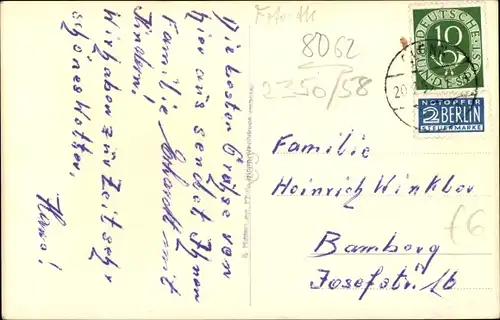 Die besten Grüße von
hier aus sendet Ihnen
Familie Erhardt mit
Kindern!
Wir haben zur Zeit sehr
schönes Wetter.
Hanso!
Foto
8062
2350/58
DEUTSCHE
BUNDESPOST
10
20.
NOTOPFER
2 BERLIN
STEUERMARKE
Familie
Heinrich Winkler
Bamberg
Josefstr. 16
£6